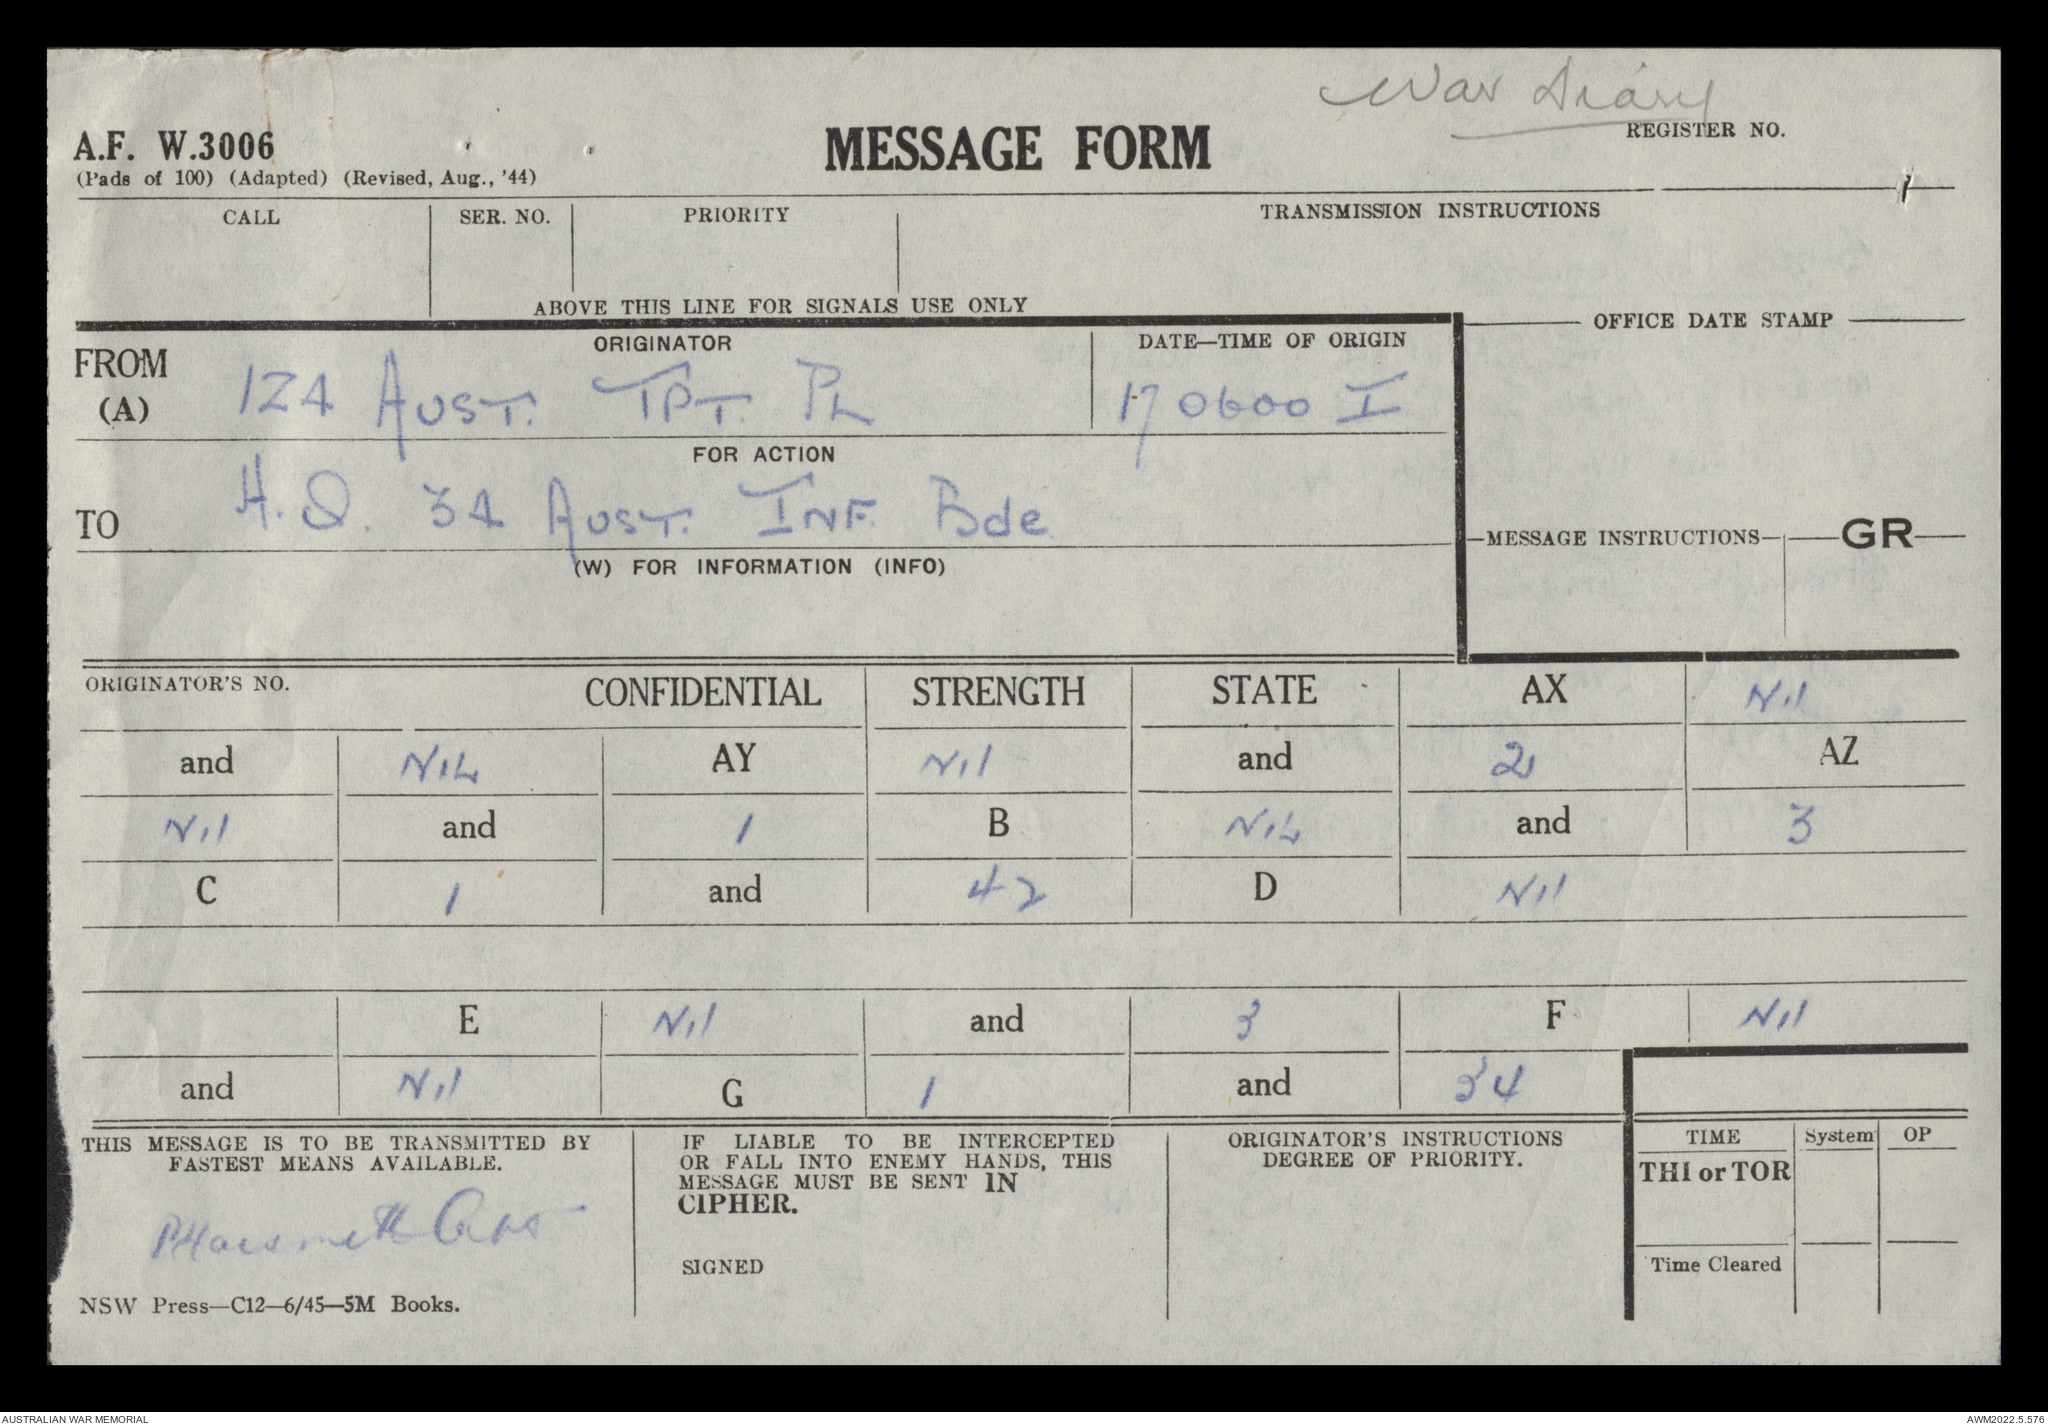 War Diary
A.F. W.3006
MESSAGE FORM
REGISTER NO.
(Pads of 100) (Adapted) (Revised, Aug., '44)
CALL SER. NO. PRIORITY TRANSMISSION INSTRUCTIONS
ABOVE THIS LINE FOR SIGNALS USE ONLY
FROM (A) ORIGINATOR DATE—TIME OF ORIGIN OFFICE DATE STAMP
124 AUST. TPT. PL 170600 I
FOR ACTION
TO H.Q. 34 AUST. INF. Bde
MESSAGE INSTRUCTIONS GR
(W) FOR INFORMATION (INFO)
ORIGINATOR'S NO. CONFIDENTIAL STRENGTH STATE AX Nil
and NIL AY Nil and 2 AZ
Nil and 1 B NIL and 3
C 1 and 42 D Nil
E Nil and 3 F Nil
and Nil G 1 and 34
THIS MESSAGE IS TO BE TRANSMITTED BY
FASTEST MEANS AVAILABLE.
Capt
NSW Press—C12—6/45—5M Books.
IF LIABLE TO BE INTERCEPTED
OR FALL INTO ENEMY HANDS, THIS
MESSAGE MUST BE SENT IN
CIPHER.
SIGNED
ORIGINATOR'S INSTRUCTIONS
DEGREE OF PRIORITY.
TIME System OP
THI or TOR
Time Cleared
AUSTRALIAN WAR MEMORIAL AWM2022.5.576